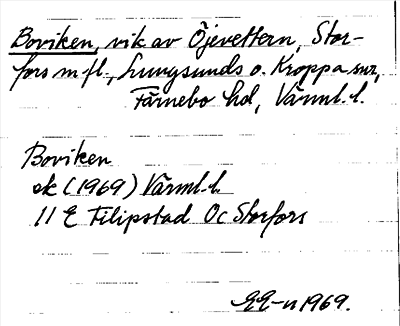 Boviken, vik av Öjevettern, Stor-
fors m fl., Lungsunds o. Kroppa snr,
Färnebo hd, Värml. l.
Boviken
ek (1969) Värml. l.
11 E Filipstad Oc Storfors
1969.